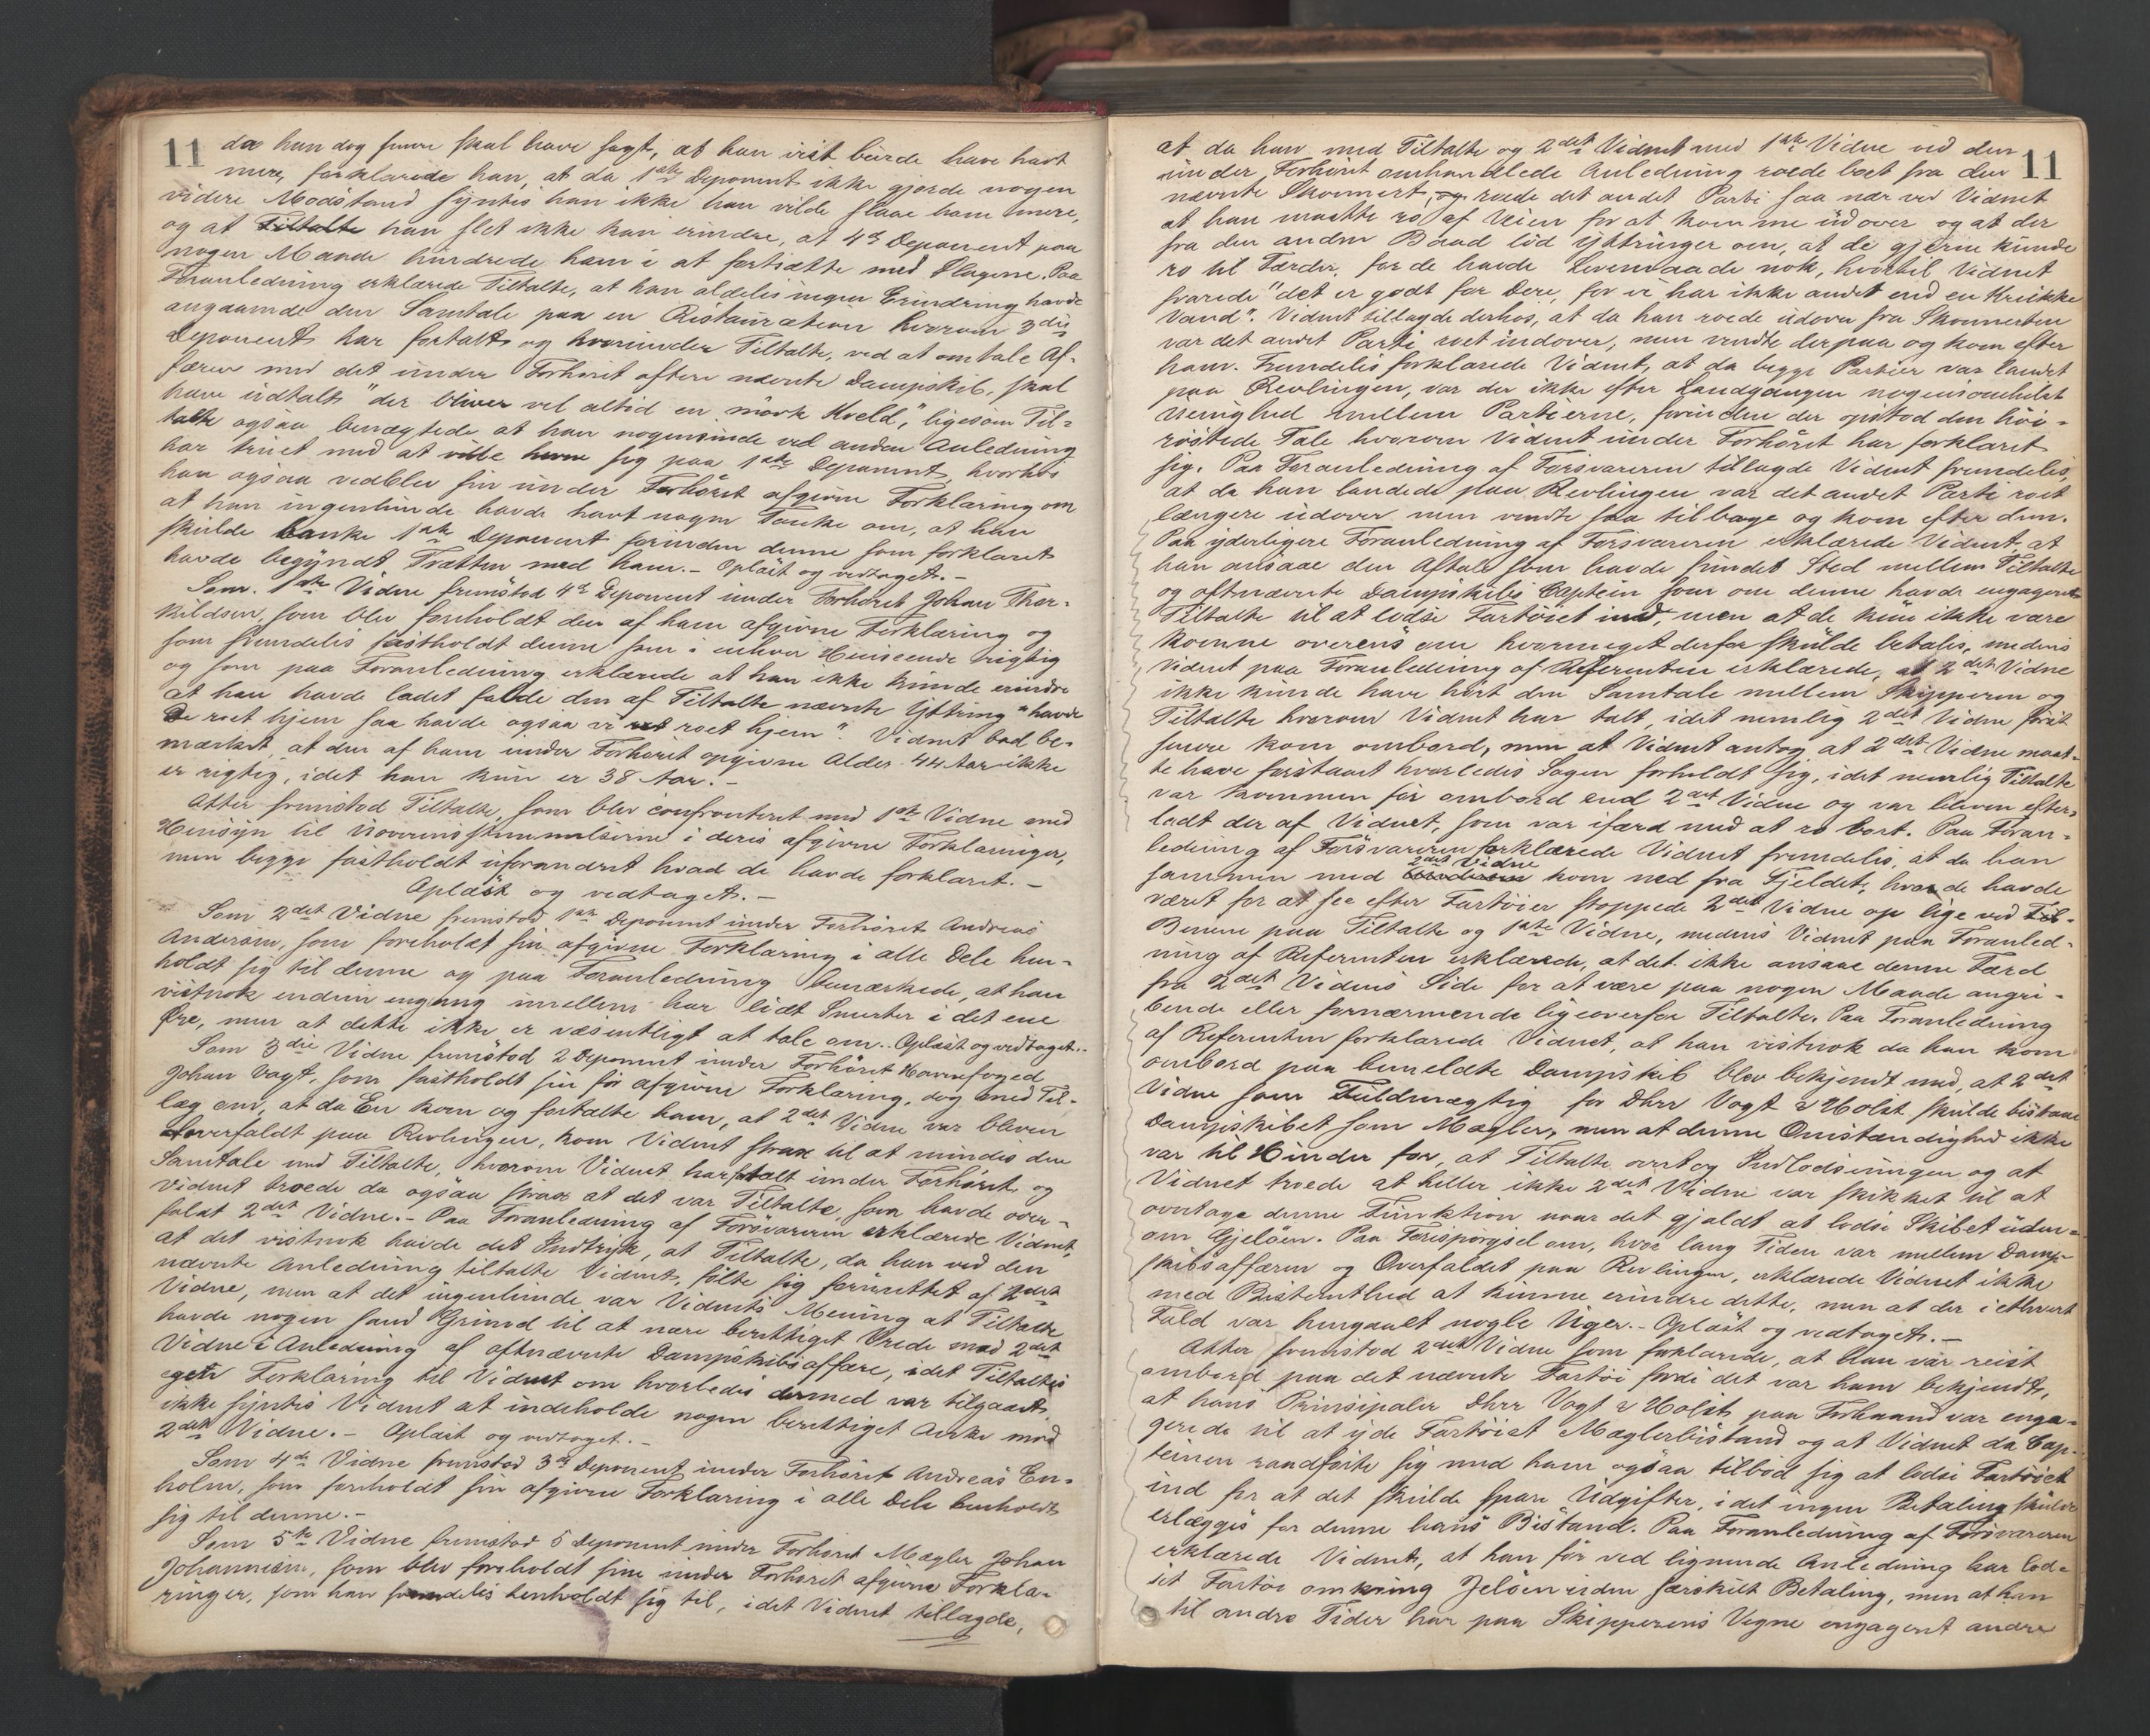 11
da han dog senere skal have sagt, at han vist burde have havt
mere, forklarede han, at da 1ste Deponent ikke gjorde nogen
videre Modstand syntes han ikke han vilde slaae ham mere,
og at Tiltalte han slet ikke kan erindre, at 4de Deponent paa
nogen Maade hindrede ham i at fortsætte med Slagene. Paa
Foranledning erklærede Tiltalte, at han aldeles ingen Erindring havde
angaaende den Samtale paa en Restauration hvorom 3die
Deponent har fortalt og hvorunder Tiltalte, ved at omtale Af-
færen med det under Forhøret oftere nævnte Dampskib, skal
have udtalt "der bliver vel altid en mørk Kveld", ligesom Til-
talte ogsaa benægtede at han nogensinde ved anden Anledning
har truet med at ville hevne sig paa 1ste Deponent, hvorhos
han ogsaa vedblev sin under Forhøret afgivne Forklaring om
at han ingenlunde havde havt nogen Tanke om, at han
skulde banke 1ste Deponent forinden denne som forklaret
havde begyndt Trætten med ham. - Oplæst og vedtaget. -
Som 1ste Vidne fremstod 4de Deponent under Forhøret Johan Thor-
kildsen, som blev foreholdt den af ham afgivne Forklaring og
som fremdeles fastholdt denne som i enhver Henseende rigtig
og som paa Foranledning erklærede at han ikke kunde erindre
at han havde ladet falde den af Tiltalte nævnte Yttring "havde
De roet hjem saa havde ogsaa vi roet hjem". Vidnet bad be-
mærket, at den af ham under Forhøret opgivne Alder 44 Aar ikke
er rigtig, idet han kun er 38 Aar. -
Atter fremstod Tiltalte, som blev confronteret med 1ste Vidne med
Hensyn til Uoverensstemmelserne i deres afgivne Forklaringer,
men begge fastholdt uforandret hvad de havde forklaret. -
Oplæst og vedtaget. -
Som 2det Vidne fremstod 1ste Deponent under Forhøret Andreas
Andersen, som foreholdt sin afgivne Forklaring i alle Dele hen-
holdt sig til denne og paa Foranledning bemærkede, at han
vistnok endnu engang imellem har lidt Smerter i det ene
Øre, men at dette ikke er væsentligt at tale om. - Oplæst og vedtaget. -
Som 3die Vidne fremstod 2 Deponent under Forhøret Havnefoged
Johan Vogt, som fastholdt sin før afgivne Forklaring, dog med Til-
læg om, at da En kom og fortalte ham, at 2det Vidne var bleven
overfaldt paa Revlingen, kom Vidnet strax til at mindes den
Samtale med Tiltalte, hvorom Vidnet har talt under Forhøret og
Vidnet troede da ogsaa strax at det var Tiltalte, som havde over-
faldt 2det Vidne. - Paa Foranledning af Forsvareren erklærede Vidnet,
at det vistnok havde det Indtryk, at Tiltalte, da han ved den
nævnte Anledning tiltalte Vidnet, følte sig forurettet af 2det
Vidne, men at det ingenlunde var Vidnets Mening at Tiltalte
havde nogen sand Grund til at nære berettiget Vrede mod 2det
Vidne i Anledning af oftnævnte Dampskibsaffære, idet Tiltaltes
egen Forklaring til Vidnet om hvorledes dermed var tilgaaet,
ikke syntes Vidnet at indeholde nogen berettiget Anke mod
2det Vidne. - Oplæst og vedtaget. -
Som 4de Vidne fremstod 3die Deponent under Forhøret Andreas En-
holm, som foreholdt sin afgivne Forklaring i alle Dele henholdt
sig til denne. -
Som 5te Vidne fremstod 5 Deponent under Forhøret Mægler Johan
Johannesen, som blev foreholdt sine under Forhøret afgivne Forkla-
ringer, som han fremdeles henholdt sig til, idet Vidnet tillagde,
11
at da han med Tiltalte og 2det Vidnet med 1ste Vidne ved den
under Forhøret omhandlede Anledning roede bort fra den
nævnte Skonnert, og roede det andet Parti saa nær ved Vidnet
at han maatte ro af Veien for at komme udover og at der
fra den anden Baad lød Yttringer om, at de gjerne kunde
ro til Færder, for de havde Levemaade nok, hvortil Vidnet
svarede "det er godt for Dere, for vi har ikke andet end en Krukke
Vand". Vidnet tillagde derhos, at da han roede udover fra Skonnerten
var det andet Parti roet indover, men vendte derpaa og kom efter
ham. Fremdeles forklarede Vidnet, at da begge Partier var landet
paa Revlingen, var der ikke efter Landgangen nogensomhelst
Uenighed mellem Partierne, forinden der opstod den høi-
røstede Tale hvorom Vidnet under Forhøret har forklaret
sig. Paa Foranledning af Forsvareren tillagde Vidnet fremdeles,
at da han landede paa Revlingen var det andet Parti roet
længere udover men vendte saa tilbage og kom efter dem.
Paa yderligere Foranledning af Forsvareren erklærede Vidnet, at
han ansaae den Aftale som havde fundet Sted mellem Tiltalte
og oftnævnte Dampskibs Captein som om denne havde engageret
Tiltalte til at lodse Fartøiet ind, men at de kun ikke vare
komne overens om hvormeget derfor skulde betales, medens
Vidnet paa Foranledning af Referenten erklærede, at 2det Vidne
ikke kunde have hørt den Samtale mellem Skipperen og
Tiltalte hvorom Vidnet har talt, idet nemlig 2det Vidne først
senere kom ombord, men at Vidnet antog at 2det Vidne maat-
te have forstaaet hvorledes Sagen forholdt sig, idet nemlig Tiltalte
var kommen før ombord end 2det Vidne og var bleven efter-
ladt der af Vidnet, som var ifærd med at ro bort. Paa Foran-
ledning af Forsvareren forklarede Vidnet fremdeles, at da han
2det Vidne
sammen med kom ned fra Fjeldet, hvor de havde
været for at see efter Fartøier stoppede 2det Vidne op lige ved
Benene paa Tiltalte og 1ste Vidne, medens Vidnet paa Foranled-
ning af Referenten erklærede, at det ikke ansaae denne Færd
fra 2det Vidnes Side for at være paa nogen Maade angri-
bende eller fornærmende ligeoverfor Tiltalte. Paa Foranledning
af Referenten forklarede Vidnet, at han vistnok da han kom
ombord paa bemeldte Dampskib blev bekjendt med, at 2det
Vidne som Fuldmægtig for Dhrr Vogt & Holst skulde bistaae
Dampskibet som Mægler, men at denne Omstændighed ikke
var til Hinder for, at Tiltalte overtog Indlodsningen og at
Vidnet troede at heller ikke 2det Vidne var skikket til at
overtage denne Funktion naar det gjaldt at lodse Skibet uden-
om Gjeløen. Paa Forespørgsel om, hvor lang Tiden var mellem Damp-
skibsaffæren og Overfaldet paa Revlingen, erklærede Vidnet ikke
med Bestemthed at kunne erindre dette, men at der i ethvert
Fald var hengaaet nogle Uger. - Oplæst og vedtaget. -
Atter fremstod 2det Vidne som forklarede, at han var reist
ombord paa det nævnte Fartøi fordi det var ham bekjendt,
at hans Prinsipaler Dhrr Vogt & Holst paa Forhaand var enga-
gerede til at yde Fartøiet Mæglerbistand og at Vidnet da Cap-
teinen raadførte sig med ham ogsaa tilbød sig at lodse Fartøiet
ind for at det skulde spare Udgifter, idet ingen Betaling skulde
erlægges for denne hans Bistand. Paa Foranledning af Forsvareren
erklærede Vidnet, at han før ved lignende Anledning har lod-
set Fartøi omkring Jeløen uden særskilt Betaling, men at han
til andre Tider har paa Skipperens Vegne engageret andre